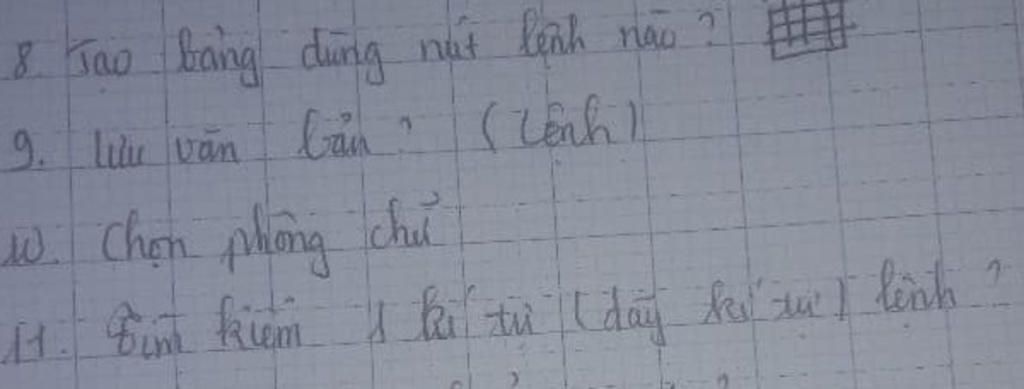 8. Tạo bảng dùng nút lệnh nào?
9. Lưu văn bản? (Lệnh)
10. Chọn phông chữ
11. Tìm kiếm 1 kí tự (dãy kí tự) lệnh?